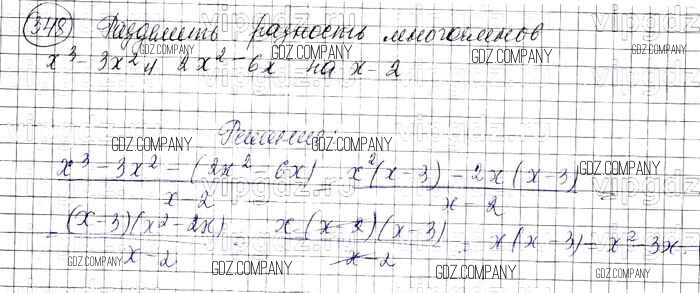 348 Разделить разность многочленов
x³ - 3x² и 2x² - 6x на x - 2
GDZ.COMPANY GDZ.COMPANY GDZ.COMPANY GDZ.COMPANY
Решение:
GDZ.COMPANY GDZ.COMPANY GDZ.COMPANY
(x³ - 3x² - (2x² - 6x))/(x - 2) = (x²(x - 3) - 2x(x - 3))/(x - 2) =
= ((x - 3)(x² - 2x))/(x - 2) = (x (x - 2)(x - 3))/(x - 2) = x(x - 3) = x² - 3x
GDZ.COMPANY GDZ.COMPANY GDZ.COMPANY GDZ.COMPANY